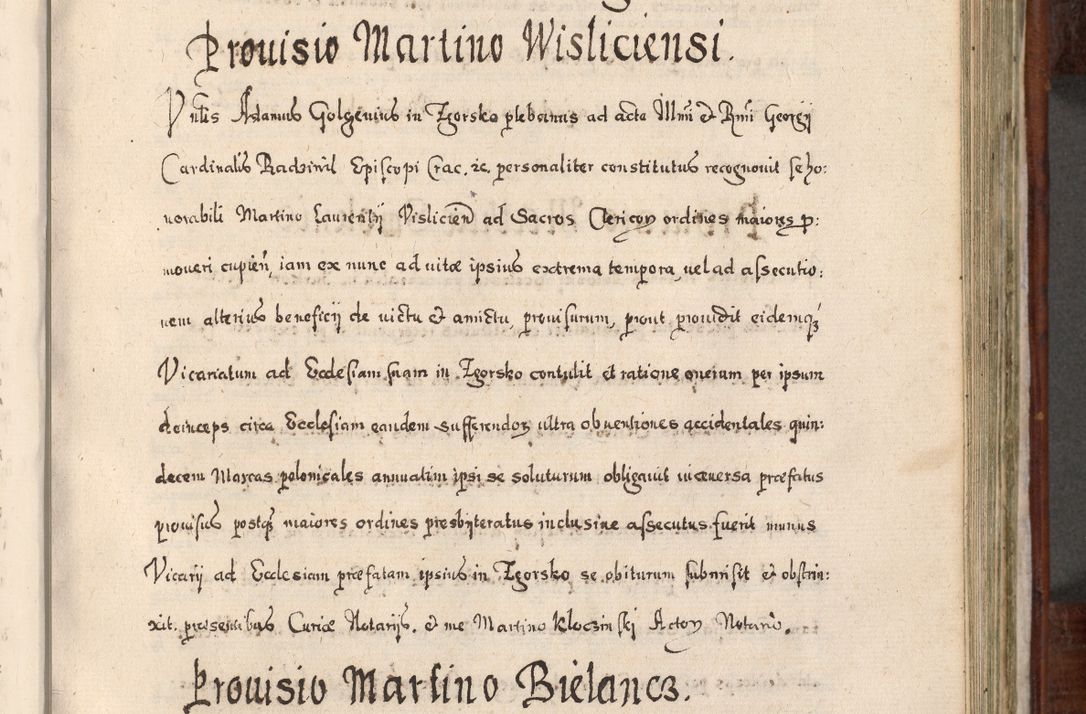 Prouisio Martino Wisliciensi.
Vnlis Adamus Golgenius in Zgorsko plebanus ad acta Illmi et Rmi Georgij
Cardinalis Radziwil Episcopi Crac. etc. personaliter constitutus recognouit se ho:
norabili Martino Laurentij Vislicien ad Sacros Clericor ordines maiores p:
moueri cupien, iam ex nunc ad uitæ ipsius extrema tempora uel ad assecutio:
nem alterius beneficij de uictu et amictu, prouisurum, prout prouidit eidemq
Vicariatum ad Ecclesiam suam in Zgorsko contulit et ratione onerum per ipsum
deinceps circa Ecclesiam eandem sufferendor ultra obuentiones accidentales quin:
decem Marcas polonicales annuatim ipsi se soluturum obligauit uiceuersa præfatus
prouisus postq maiores ordines presbyteratus inclusiue assecutus fuerit munus
Vicarij ad Ecclesiam præfatam ipsius in Zgorsko se obiturum submisit et obstrin:
xit. presentibus Curiæ Notarijs. et me Martino Kloczinski Actor Notario.
Prouisio Martino Bielancz.